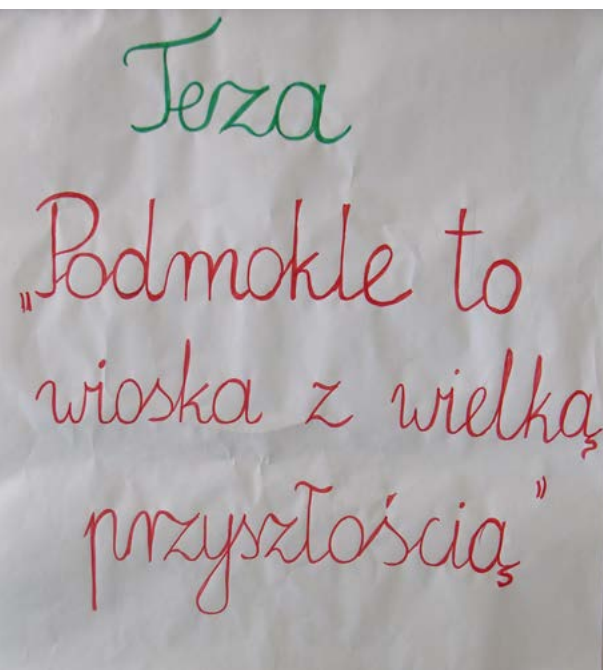 Teza
„Podmokle to
wioska z wielką
przyszłością”